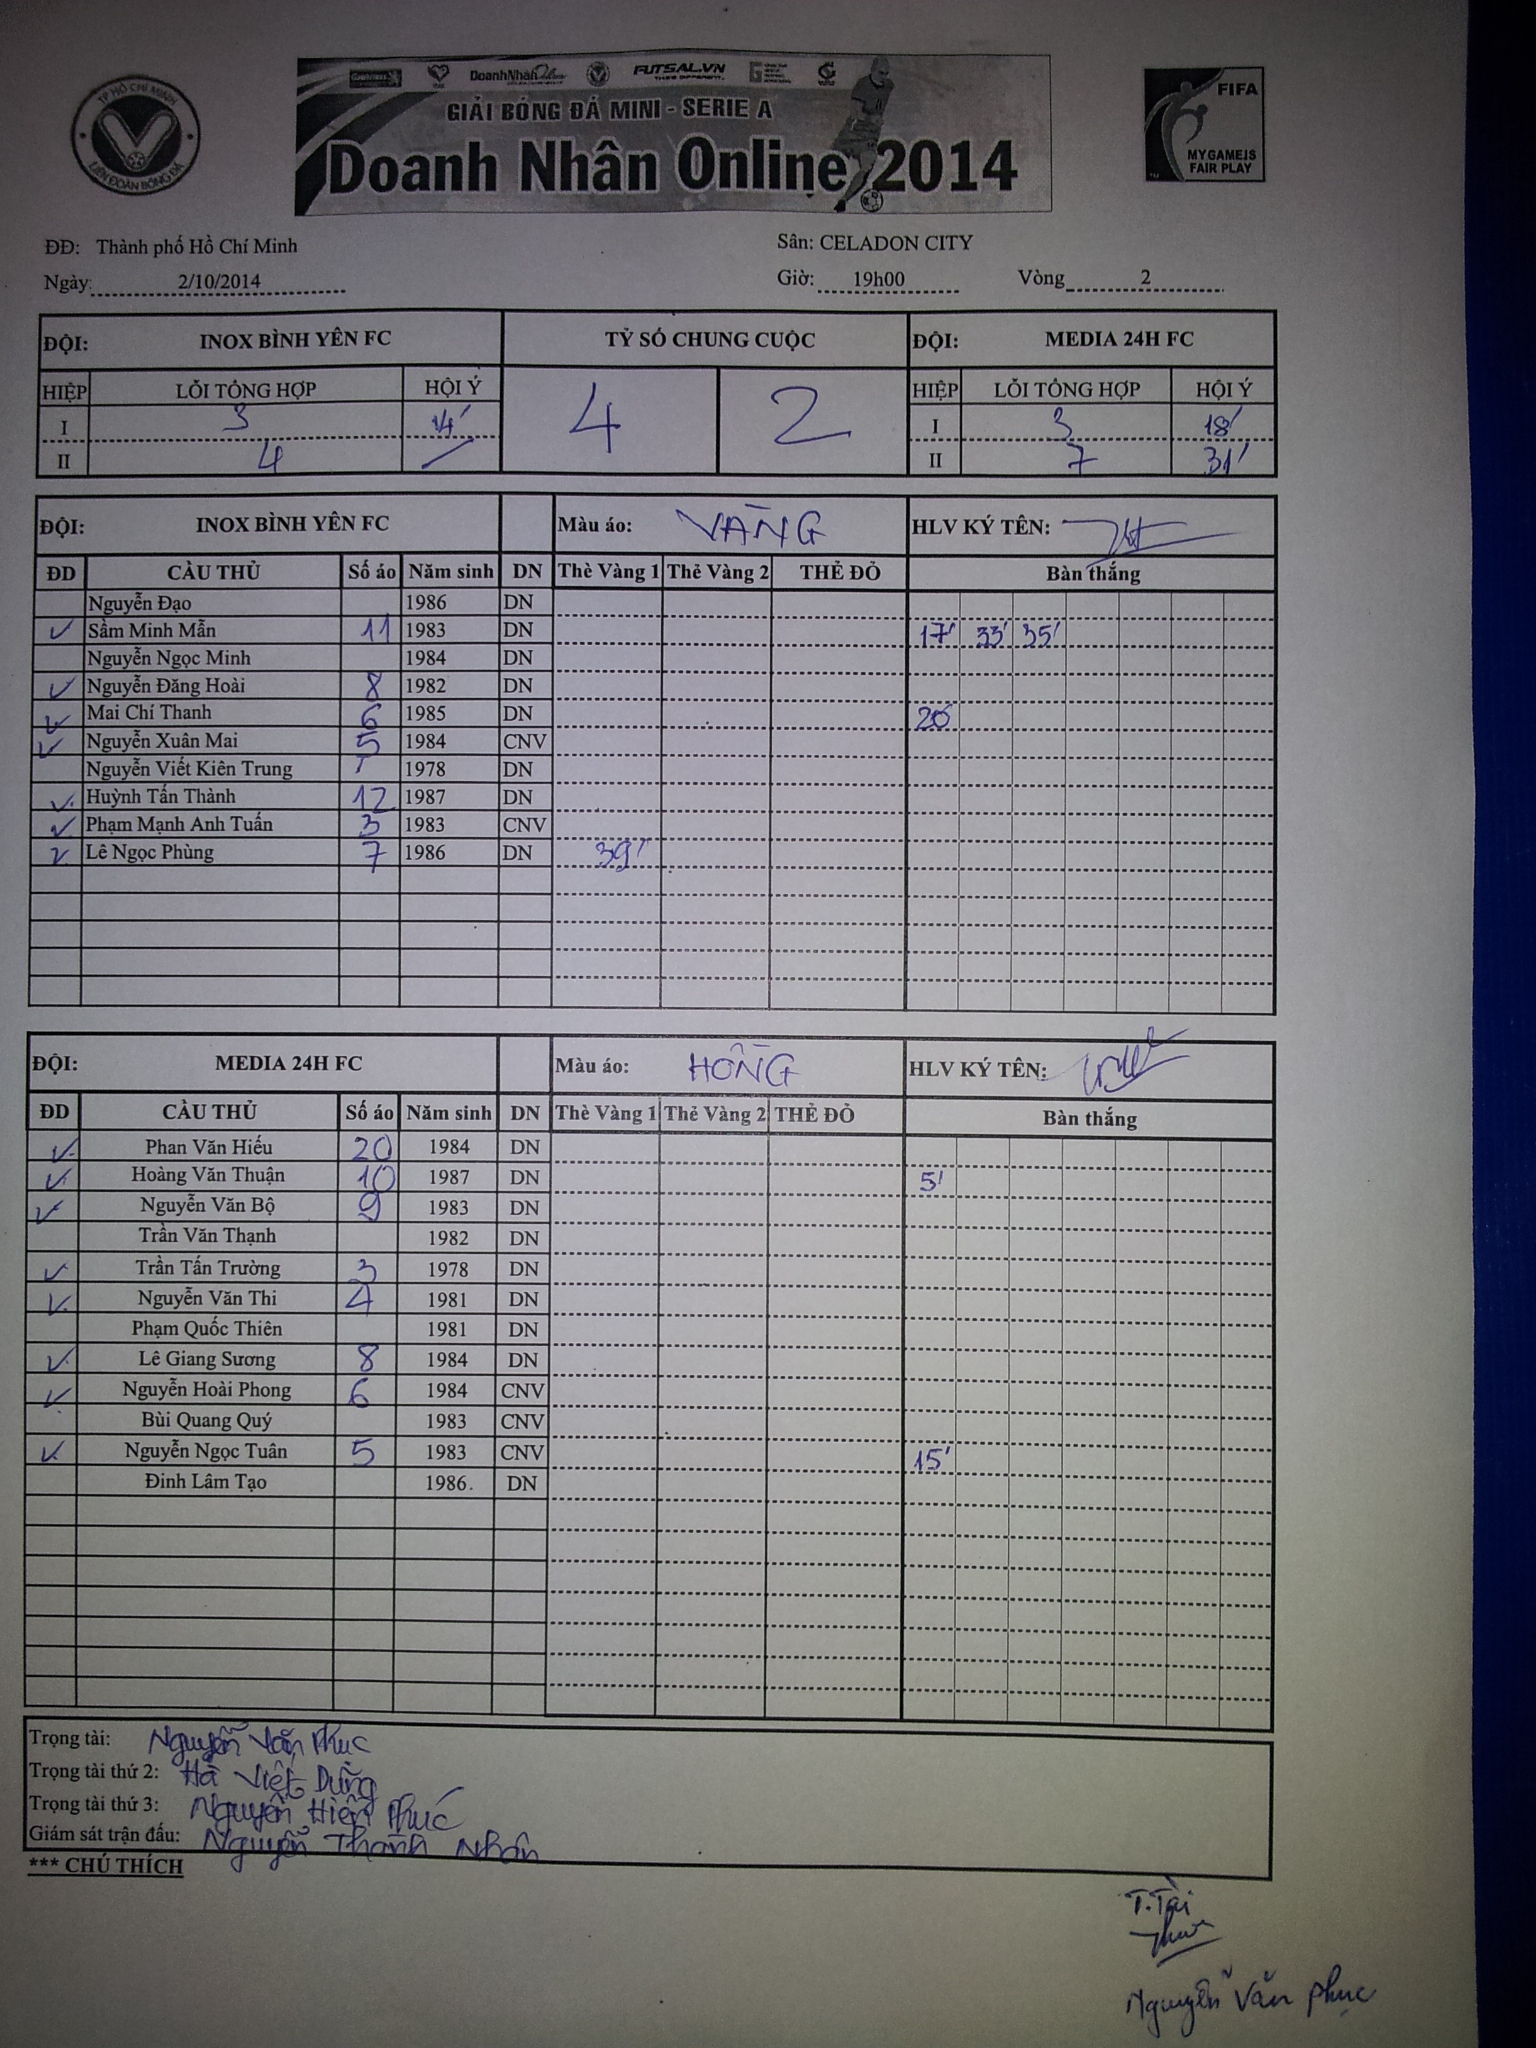 TP HỒ CHÍ MINH
LIÊN ĐOÀN BÓNG ĐÁ
DoanhNhân FUTSAL.VN
GIẢI BÓNG ĐÁ MINI - SERIE A
Doanh Nhân Online 2014
FIFA
MY GAME IS
FAIR PLAY
ĐĐ: Thành phố Hồ Chí Minh Sân: CELADON CITY
Ngày: 2/10/2014 Giờ: 19h00 Vòng 2
ĐỘI: INOX BÌNH YÊN FC TỶ SỐ CHUNG CUỘC ĐỘI: MEDIA 24H FC
HIỆP LỖI TỔNG HỢP HỘI Ý 4 2 HIỆP LỖI TỔNG HỢP HỘI Ý
I 3 14' I 3 18'
II 4 II 7 31'
ĐỘI: INOX BÌNH YÊN FC Màu áo: VÀNG HLV KÝ TÊN:
ĐD CẦU THỦ Số áo Năm sinh DN Thẻ Vàng 1 Thẻ Vàng 2 THẺ ĐỎ Bàn thắng
Nguyễn Đạo 1986 DN
✓ Sầm Minh Mẫn 11 1983 DN 17' 33' 35'
Nguyễn Ngọc Minh 1984 DN
✓ Nguyễn Đăng Hoài 8 1982 DN
✓ Mai Chí Thanh 6 1985 DN
✓ Nguyễn Xuân Mai 5 1984 CNV
Nguyễn Viết Kiên Trung 1978 DN
✓ Huỳnh Tấn Thành 12 1987 DN
✓ Phạm Mạnh Anh Tuấn 3 1983 CNV
✓ Lê Ngọc Phùng 7 1986 DN 39'
ĐỘI: MEDIA 24H FC Màu áo: HỒNG HLV KÝ TÊN:
ĐD CẦU THỦ Số áo Năm sinh DN Thẻ Vàng 1 Thẻ Vàng 2 THẺ ĐỎ Bàn thắng
✓ Phan Văn Hiếu 20 1984 DN
✓ Hoàng Văn Thuận 10 1987 DN 5'
✓ Nguyễn Văn Bộ 9 1983 DN
Trần Văn Thạnh 1982 DN
✓ Trần Tấn Trường 3 1978 DN
✓ Nguyễn Văn Thi 4 1981 DN
Phạm Quốc Thiên 1981 DN
✓ Lê Giang Sương 8 1984 DN
✓ Nguyễn Hoài Phong 6 1984 CNV
Bùi Quang Quý 1983 CNV
✓ Nguyễn Ngọc Tuân 5 1983 CNV 15'
Đinh Lâm Tạo 1986. DN
Trọng tài: Nguyễn Văn Phục
Trọng tài thứ 2: Hà Việt Dũng
Trọng tài thứ 3: Nguyễn Hiền Phúc
Giám sát trận đấu: Nguyễn Thành Nhân
*** CHÚ THÍCH
T.Tài
Nguyễn Văn Phục